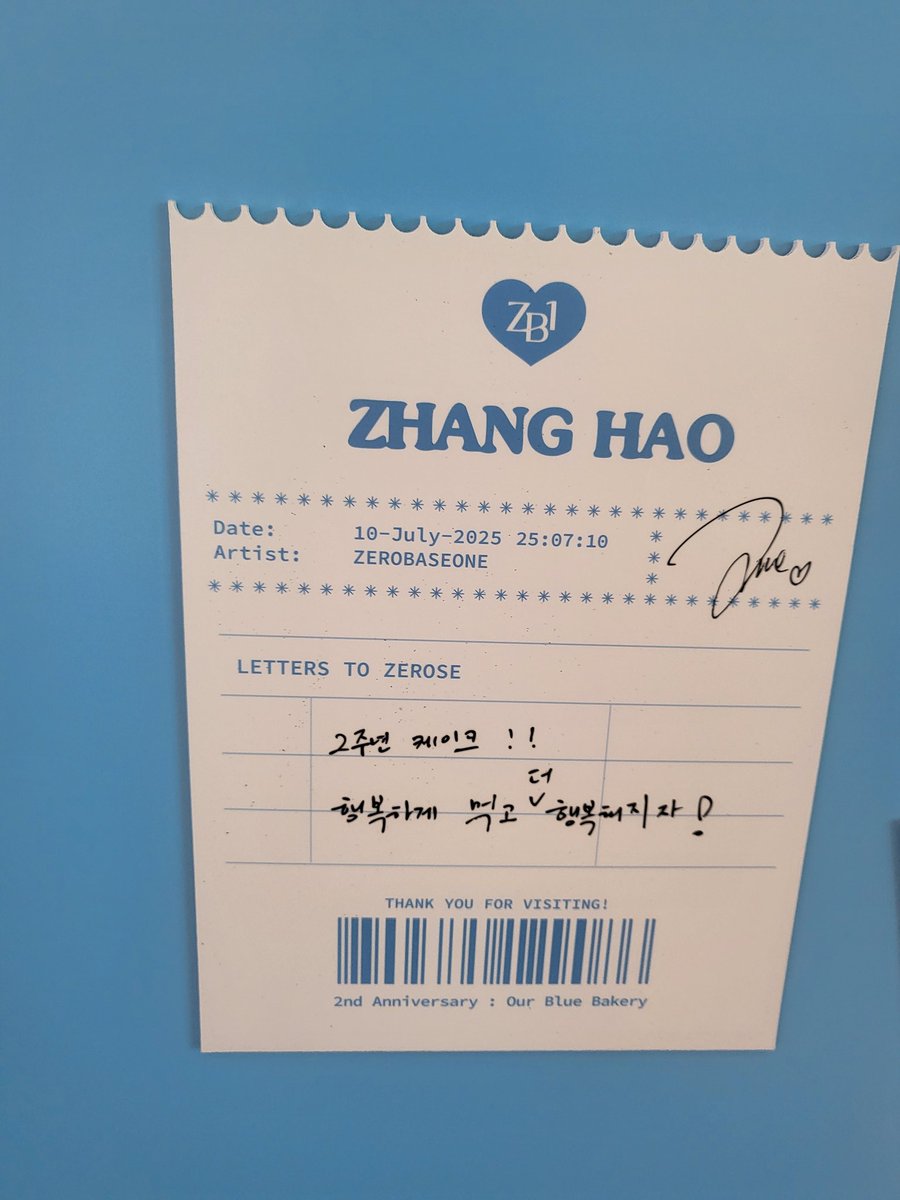 ZB1
ZHANG HAO
********************************
Date: 10-July-2025 25:07:10
Artist: ZEROBASEONE
********************************
LETTERS TO ZEROSE
2주년 케이크 !!
행복하게 먹고 더 행복해지자!
THANK YOU FOR VISITING!
2nd Anniversary : Our Blue Bakery